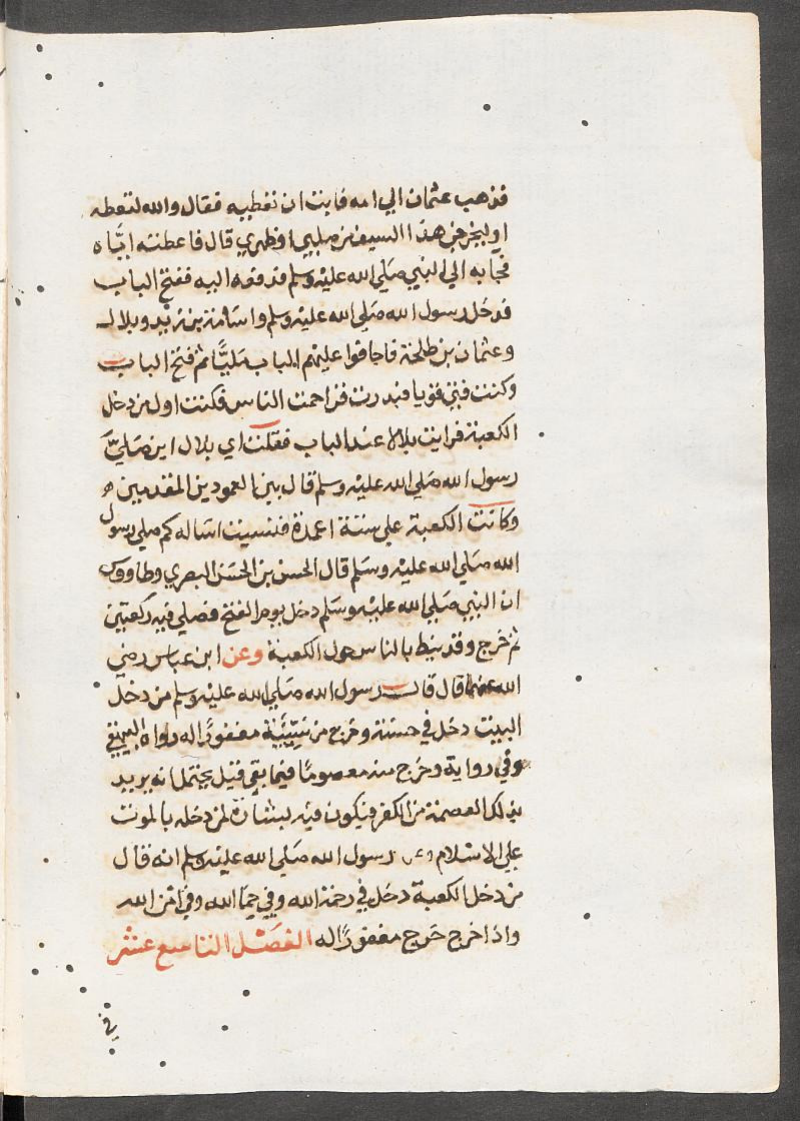 فذهب عثمان الي امه فابت ان تعطيه فقال والله لتعطه
او ليخرجن هذا السيف من صلبي او ظهري قال فاعطته اياه
فجا به الي النبي صلي الله عليه وسلم فدفعه اليه ففتح الباب
فدخل رسول الله صلي الله عليه وسلم واسامة بن زيد وبلال
وعثمان بن طلحة فاجافوا عليهم الباب مليًّا ثم فتح الباب
وكنت فتي قويا فبدرت فزاحمت الناس فكنت اول من دخل
الكعبة فرايت بلالا عند الباب فقلت اي بلال اين صلي
رسول الله صلي الله عليه وسلم قال بين العمودين المقدمين
وكانت الكعبة علي ستة اعمدة فنسيت اساله كم صلي رسول
الله صلي الله عليه وسلم قال الحسن بن الحسن البصري وطاووس
ان النبي صلي الله عليه وسلم دخل يوم الفتح فصلي فيه ركعتين
ثم خرج وقد نيط بالناس حول الكعبة وعن ابن عباس رضي
الله عنهما قال قال رسول الله صلي الله عليه وسلم من دخل
البيت دخل في حسنة وخرج من سيئة مغفورًا له رواه البيهقي
وفي رواية وخرج منه معصومًا فيما بقي قيل يحتمل انه يريد
بذلك العصمة من الكفر فيكون فيه بشارة لمن دخله بالموت
علي الاسلام وعن رسول الله صلي الله عليه وسلم انه قال
من دخل الكعبة دخل في رحمة الله وفي حما الله وفي امن الله
واذا خرج خرج مغفورًا له الفصل التاسع عشر
في